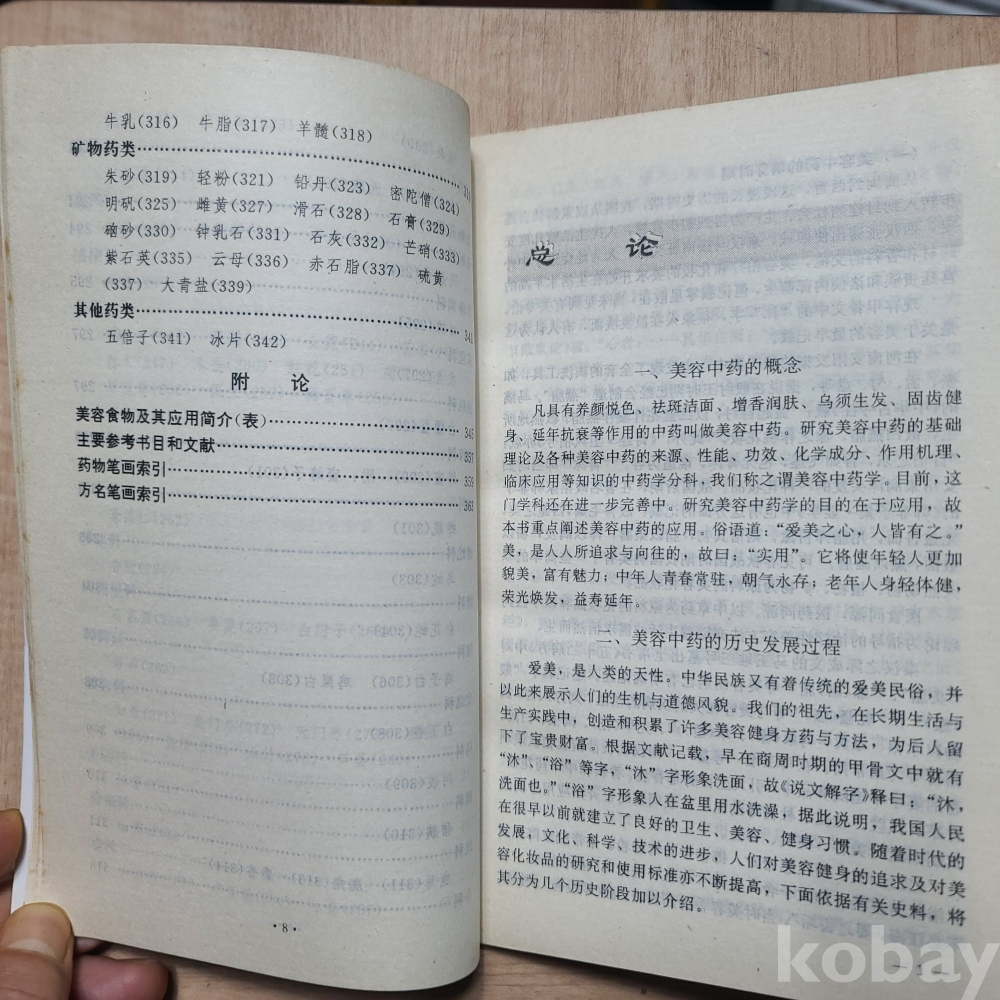 牛乳(316) 牛脂(317) 羊髓(318)
矿物药类
朱砂(319) 轻粉(321) 铅丹(323) 密陀僧(324)
明矾(325) 雌黄(327) 滑石(328) 石膏(329)
硇砂(330) 钟乳石(331) 石灰(332) 芒硝(333)
紫石英(335) 云母(336) 赤石脂(337) 硫黄
(337) 大青盐(339)
其他药类 341
五倍子(341) 冰片(342)
附 论
美容食物及其应用简介(表) 345
主要参考书目和文献 357
药物笔画索引 359
方名笔画索引 363
·8·
总 论
一、美容中药的概念
凡具有养颜悦色、祛斑洁面、增香润肤、乌须生发、固齿健
身、延年抗衰等作用的中药叫做美容中药。研究美容中药的基础
理论及各种美容中药的来源、性能、功效、化学成分、作用机理、
临床应用等知识的中药学分科，我们称之谓美容中药学。目前，这
门学科还在进一步完善中。研究美容中药学的目的在于应用，故
本书重点阐述美容中药的应用。俗语道：“爱美之心，人皆有之。”
美，是人人所追求与向往的，故曰：“实用”。它将使年轻人更加
貌美，富有魅力；中年人青春常驻，朝气永存；老年人身轻体健，
荣光焕发，益寿延年。
二、美容中药的历史发展过程
爱美，是人类的天性。中华民族又有着传统的爱美民俗，并
以此来展示人们的生机与道德风貌。我们的祖先，在长期生活与
生产实践中，创造和积累了许多美容健身方药与方法，为后人留
下了宝贵财富。根据文献记载，早在商周时期的甲骨文中就有
“沐”、“浴”等字，“沐”字形象洗面，故《说文解字》释曰：“沐，
洗面也。”“浴”字形象人在盆里用水洗澡，据此说明，我国人民
在很早以前就建立了良好的卫生、美容、健身习惯。随着时代的
发展，文化、科学、技术的进步，人们对美容健身的追求及对美
容化妆品的研究和使用标准亦不断提高，下面依据有关史料，将
其分为几个历史阶段加以介绍。
— 1 —
kobay